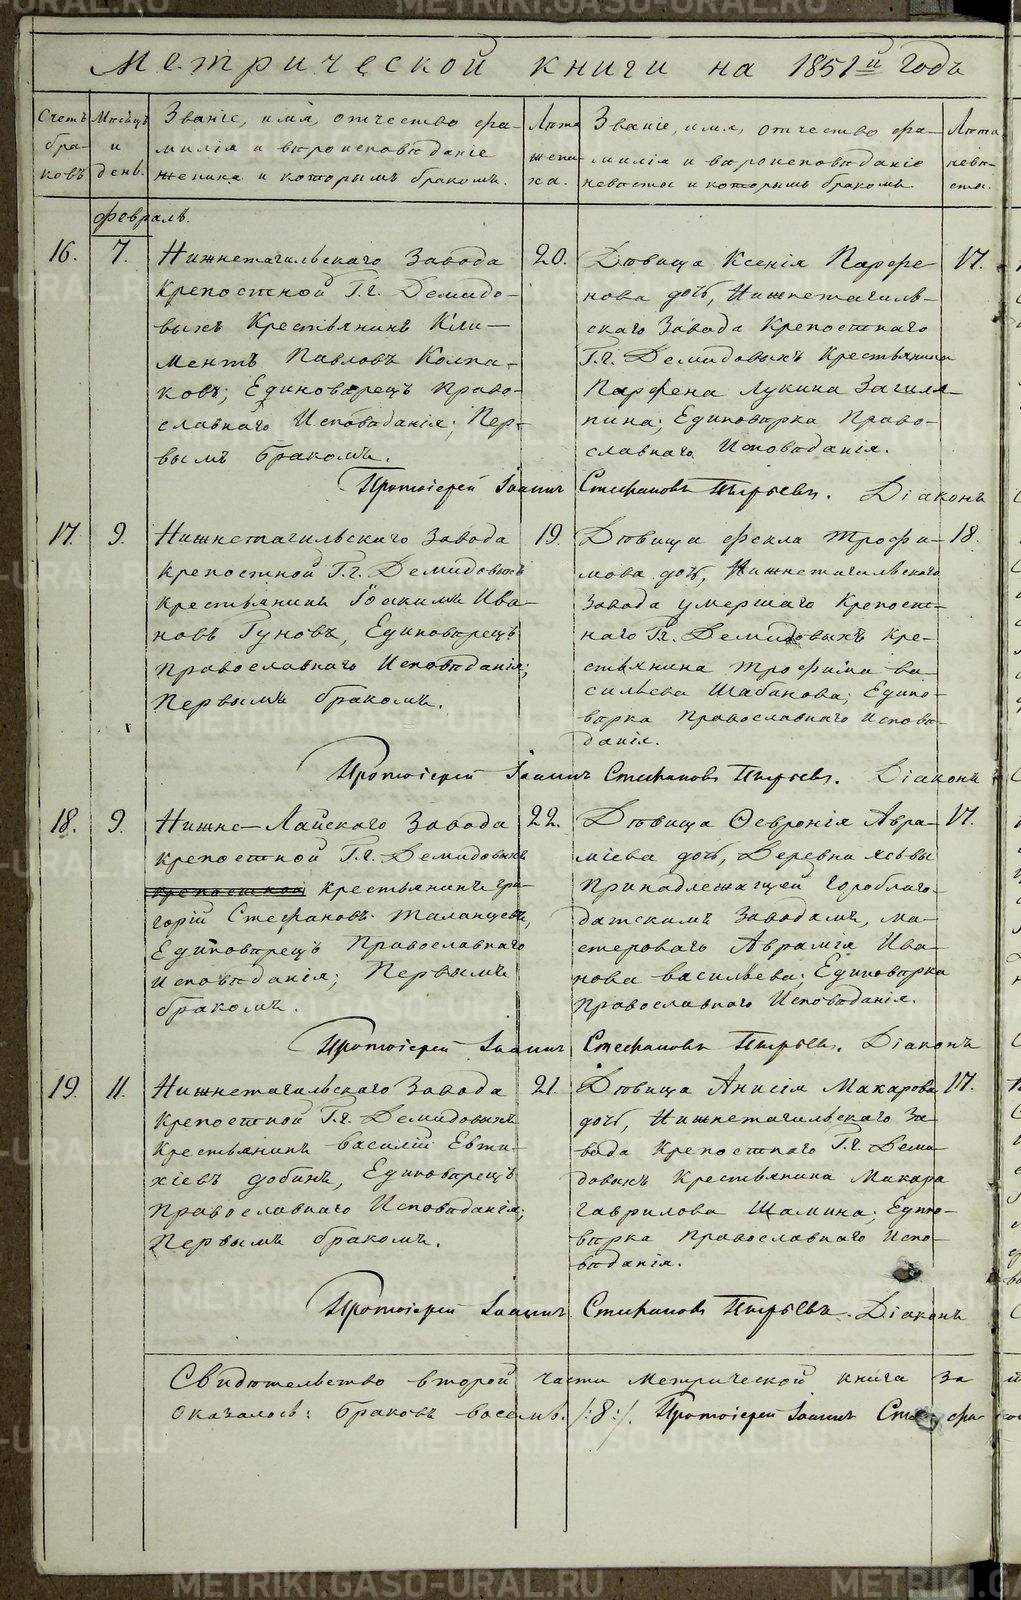 Метрической книги на 1851й годъ
Счетъ браковъ
Месяцъ и день.
Званіе, имя, отчество фа-
милія и вѣроисповѣданіе
жениха и которымъ бракомъ.
Лѣта жениха.
Званіе, имя, отчество фа-
милія и вѣроисповѣданіе
невѣсты и которымъ бракомъ
Лѣта невѣсты.
Февраль.
16.
7.
Нижнетагильскаго Завода
крепостной Г.г. Демидо-
выхъ Крестьянинъ Кли-
ментъ Павловъ Колпа-
ковъ; Единоверецъ право-
славнаго Исповѣданія; Пер-
вымъ бракомъ.
20.
Дѣвица Ксенія Парфе
нова дочь, Нижнетагиль-
скаго Завода Крепостнаго
Г.г. Демидовыхъ Крестьянина
Парфена Лукина Загиля-
пина; Единовѣрка Право-
славнаго Исповѣданія.
17.
Протоіерей Іоаннъ Стефановъ Пырьевъ. Діаконъ
17.
9.
Нижнетагильскаго Завода
крепостной Г.г. Демидовыхъ
крестьянинъ Іоакимъ Ива-
новъ Гуновъ, Единовѣрецъ
православнаго Исповѣданія;
Первымъ бракомъ.
19.
Дѣвица Фекла Трофи-
мова дочь, Нижнетагильскаго
Завода умершаго Крепост-
наго Гг. Демидовыхъ Кре-
стьянина Трофима Ва-
сильева Шабанова; Едино-
вѣрка православнаго Исповѣ-
данія.
18.
Протоіерей Іоаннъ Стефановъ Пырьевъ. Діаконъ
18.
9.
Нижне-Лайскаго Завода
крепостной Г.г. Демидовыхъ
крепостной крестьянинъ Гри-
горій Стефановъ Таланцевъ,
Единовѣрецъ Православнаго
исповѣданія; Первымъ
бракомъ.
22.
Дѣвица Ѳевронія Авра-
міева дочь, Деревни
Принадлежащей Гороблаго-
датскимъ Заводамъ, ма-
стероваго Аврамія Ива-
нова Васильева; Единовѣрка
Православнаго Исповѣданія.
17.
Протоіерей Іоаннъ Стефановъ Пырьевъ. Діаконъ
19.
11.
Нижнетагильскаго Завода
крепостной Г.г. Демидовыхъ
Крестьянинъ Василій Евти-
хіевъ Добинъ, Единовѣрецъ
православнаго Исповѣданія;
Первымъ бракомъ.
21.
Дѣвица Анисія Макарова
дочь, Нижнетагильскаго За-
вода Крепостнаго Г.г. Деми-
довыхъ Крестьянина Макара
Гаврилова Шамина; Едино-
вѣрка православнаго Испо-
вѣданія.
17.
Протоіерей Іоаннъ Стефановъ Пырьевъ. Діаконъ
Свидѣтельство второй части Метрической книги за
Оказалось: браковъ восемь. /:8:/. Протоіерей Іоаннъ Стефа-
METRIKI.GASO-URAL.RU